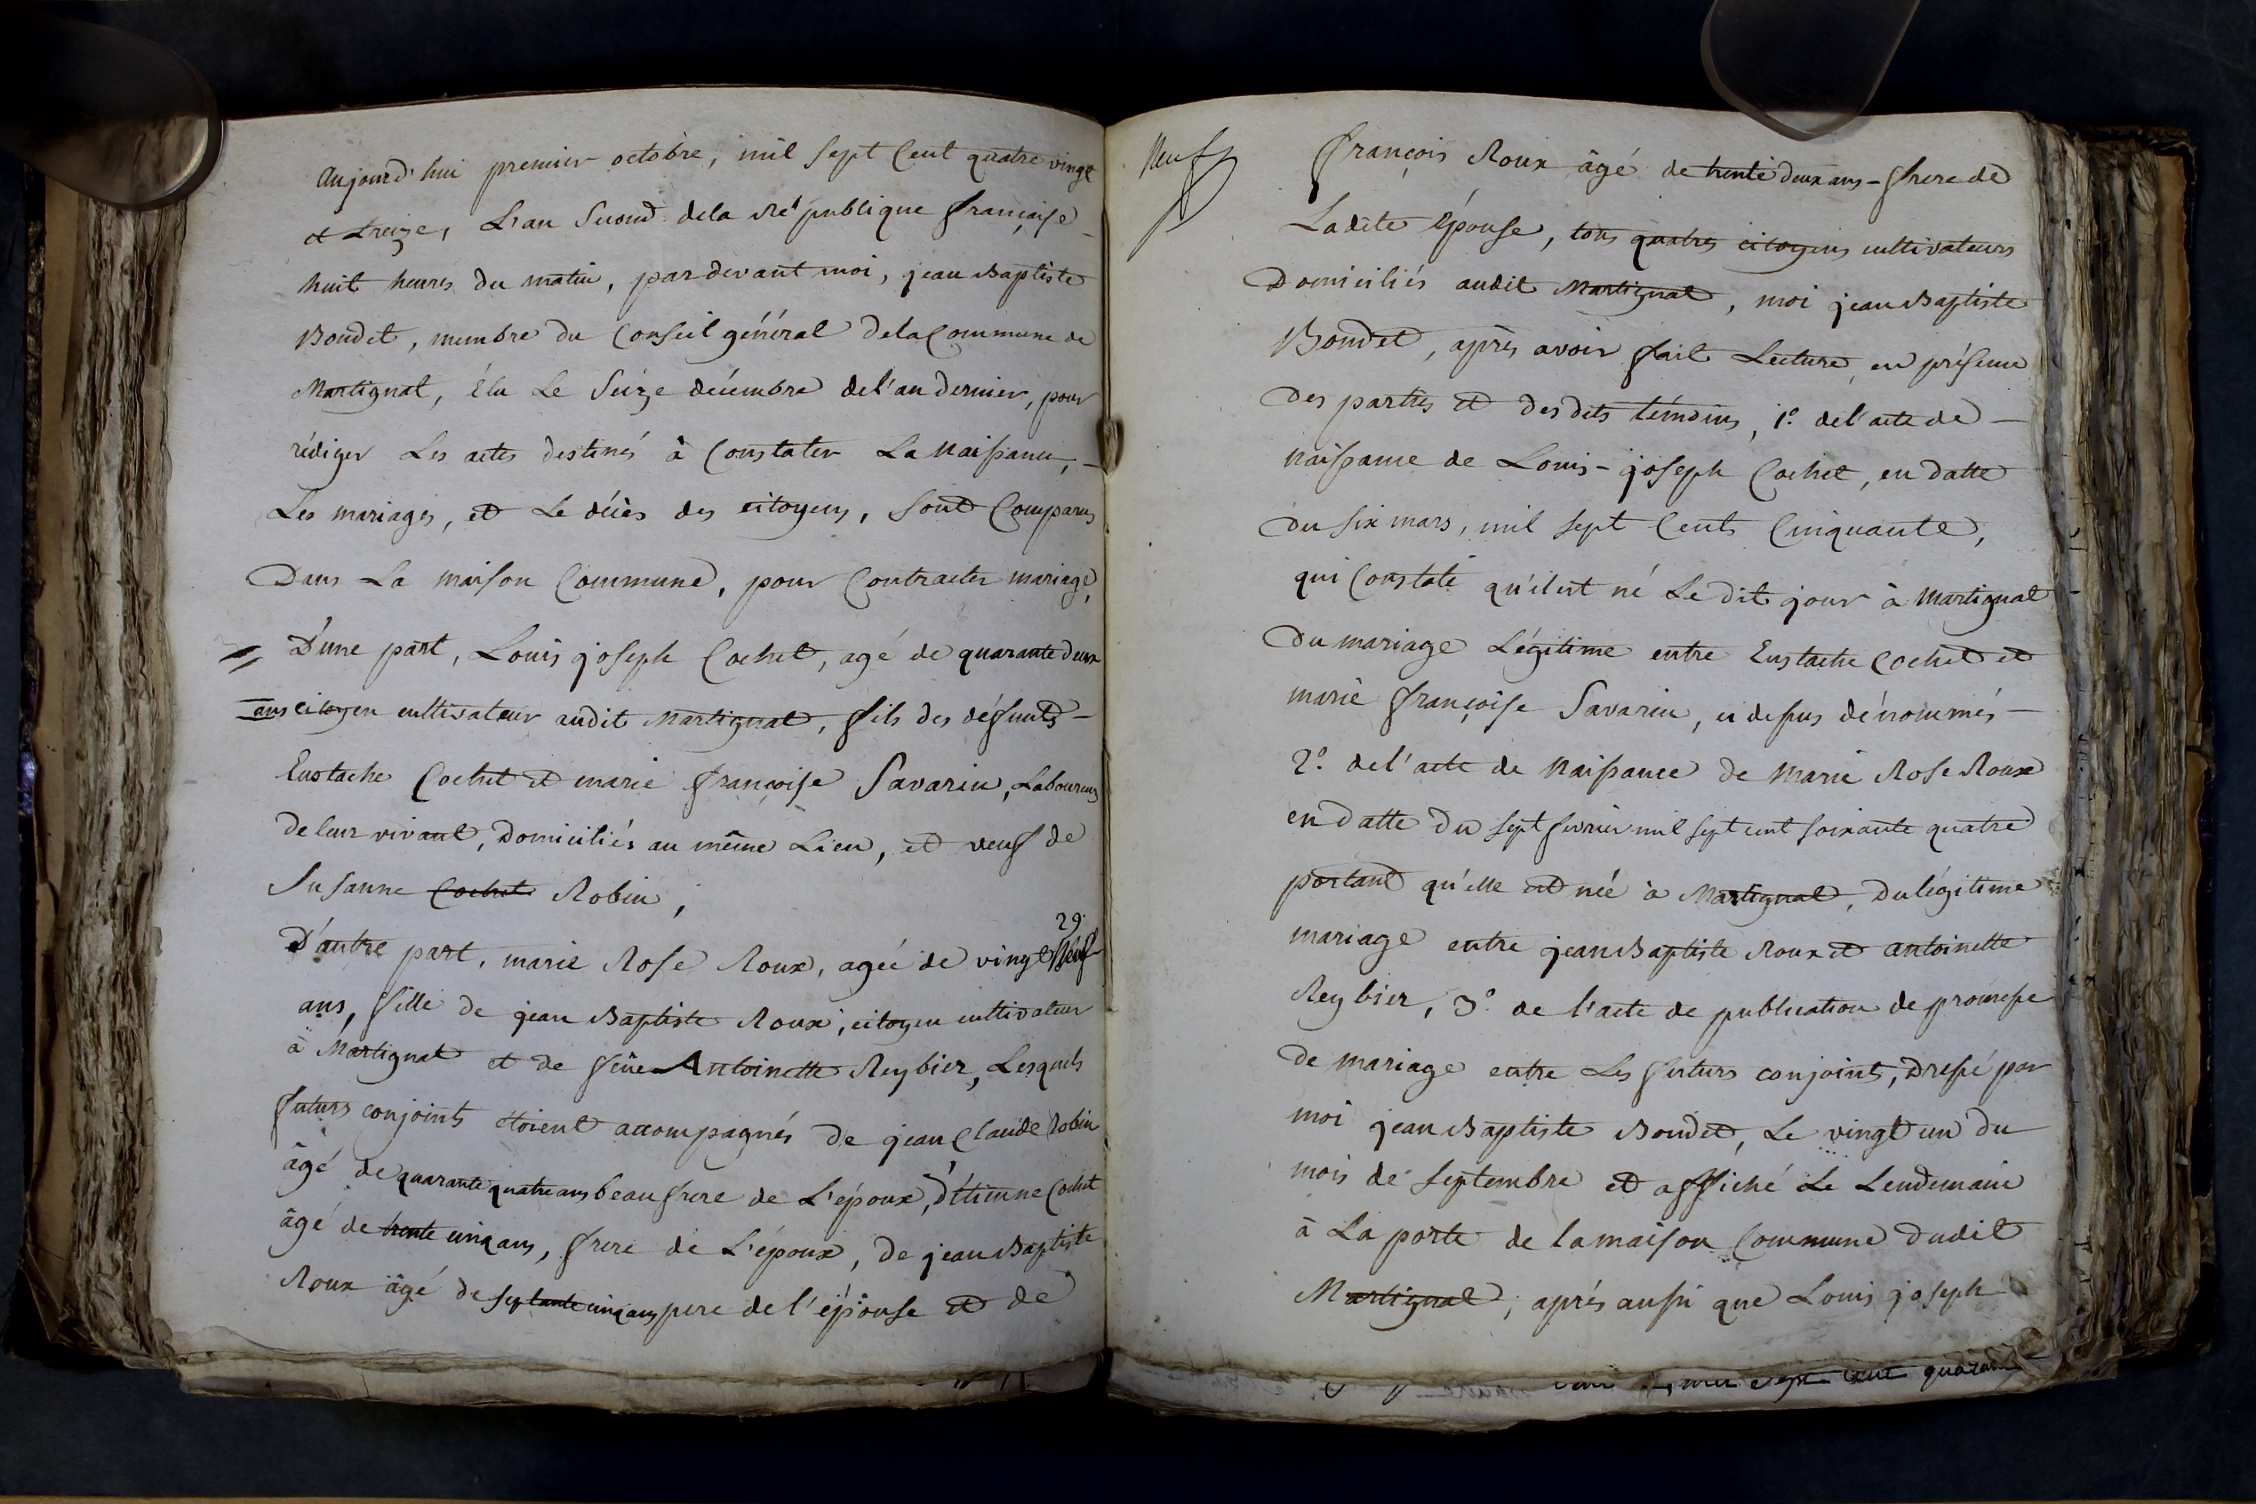 Aujourd'hui premier octobre, mil sept Cent quatre vingt
et treize, L'an Second de la République françaişe
huit heures du matin, pardevant moi, jean Baptiste
Bondet, membre du Conseil général de la Commune de
Martignat, élu Le Seize décembre de l'an dernier, pour
rédiger Les actes destinés à Constater La Naissance,
Les mariages, et Le décès des citoyens, sont Comparus
Dans La maison Commune, pour Contracter mariage,
D'une part, Louis joseph Cochet, agé de quarante deux
ans citoyen cultivateur audit Martignat, fils des défunts
Eustache Cochet et marie françoise Savarin, Laboureurs
de leur vivant, Domiciliés au même Lieu, et veuf de
Susanne Cochet Robin,
29
D'autre part, marie Rose Roux, agée de vingt Neuf
ans, fille de jean Baptiste Roux, citoyen cultivateur
à Martignat et de feüe Antoinette Reybier, Lesquels
futurs conjoints étoient accompagnés de jean Claude Robin
âgé de quarante quatre ans beau frere de L'époux, d'étienne Cochet
âgé de trente cinq ans, frere de L'époux, De jean Baptiste
Roux âgé de septante cinq ans pere de l'épouse et de
Neuf
françois Roux âgé de trente deux ans - frere de
Ladite épouse, tous quatres citoyens cultivateurs
Domiciliés audit Martignat, moi jean Baptiste
Bondet, après avoir fait Lecture, en présence
Des parties et des dits témoins, 1.° de l'acte de
Naissance de Louis - joseph Cochet, en datte
du six mars, mil sept Cents Cinquante,
qui Constate qu'il est né Le dit jour à Martignat
Du mariage Légitime entre Eustache Cochet et
marie françoise Savarin, ci dessus dénommés
2.° de l'acte de Naissance de Marie Rose Roux
en datte Du sept fevrier mil sept cent soixante quatre
portant qu'elle est née à Martignat, Du légitime
mariage entre jean Baptiste Roux et antoinette
Reybier, 3.° de l'acte de publication de promesse
de mariage entre Les futurs conjoints, Dressé par
moi jean Baptiste Bondet, Le vingt un du
mois de septembre et affiché Le Lendemain
à La porte de la maison Commune dudit
Martignat, après aussi que Louis joseph
mil sept cent quaran